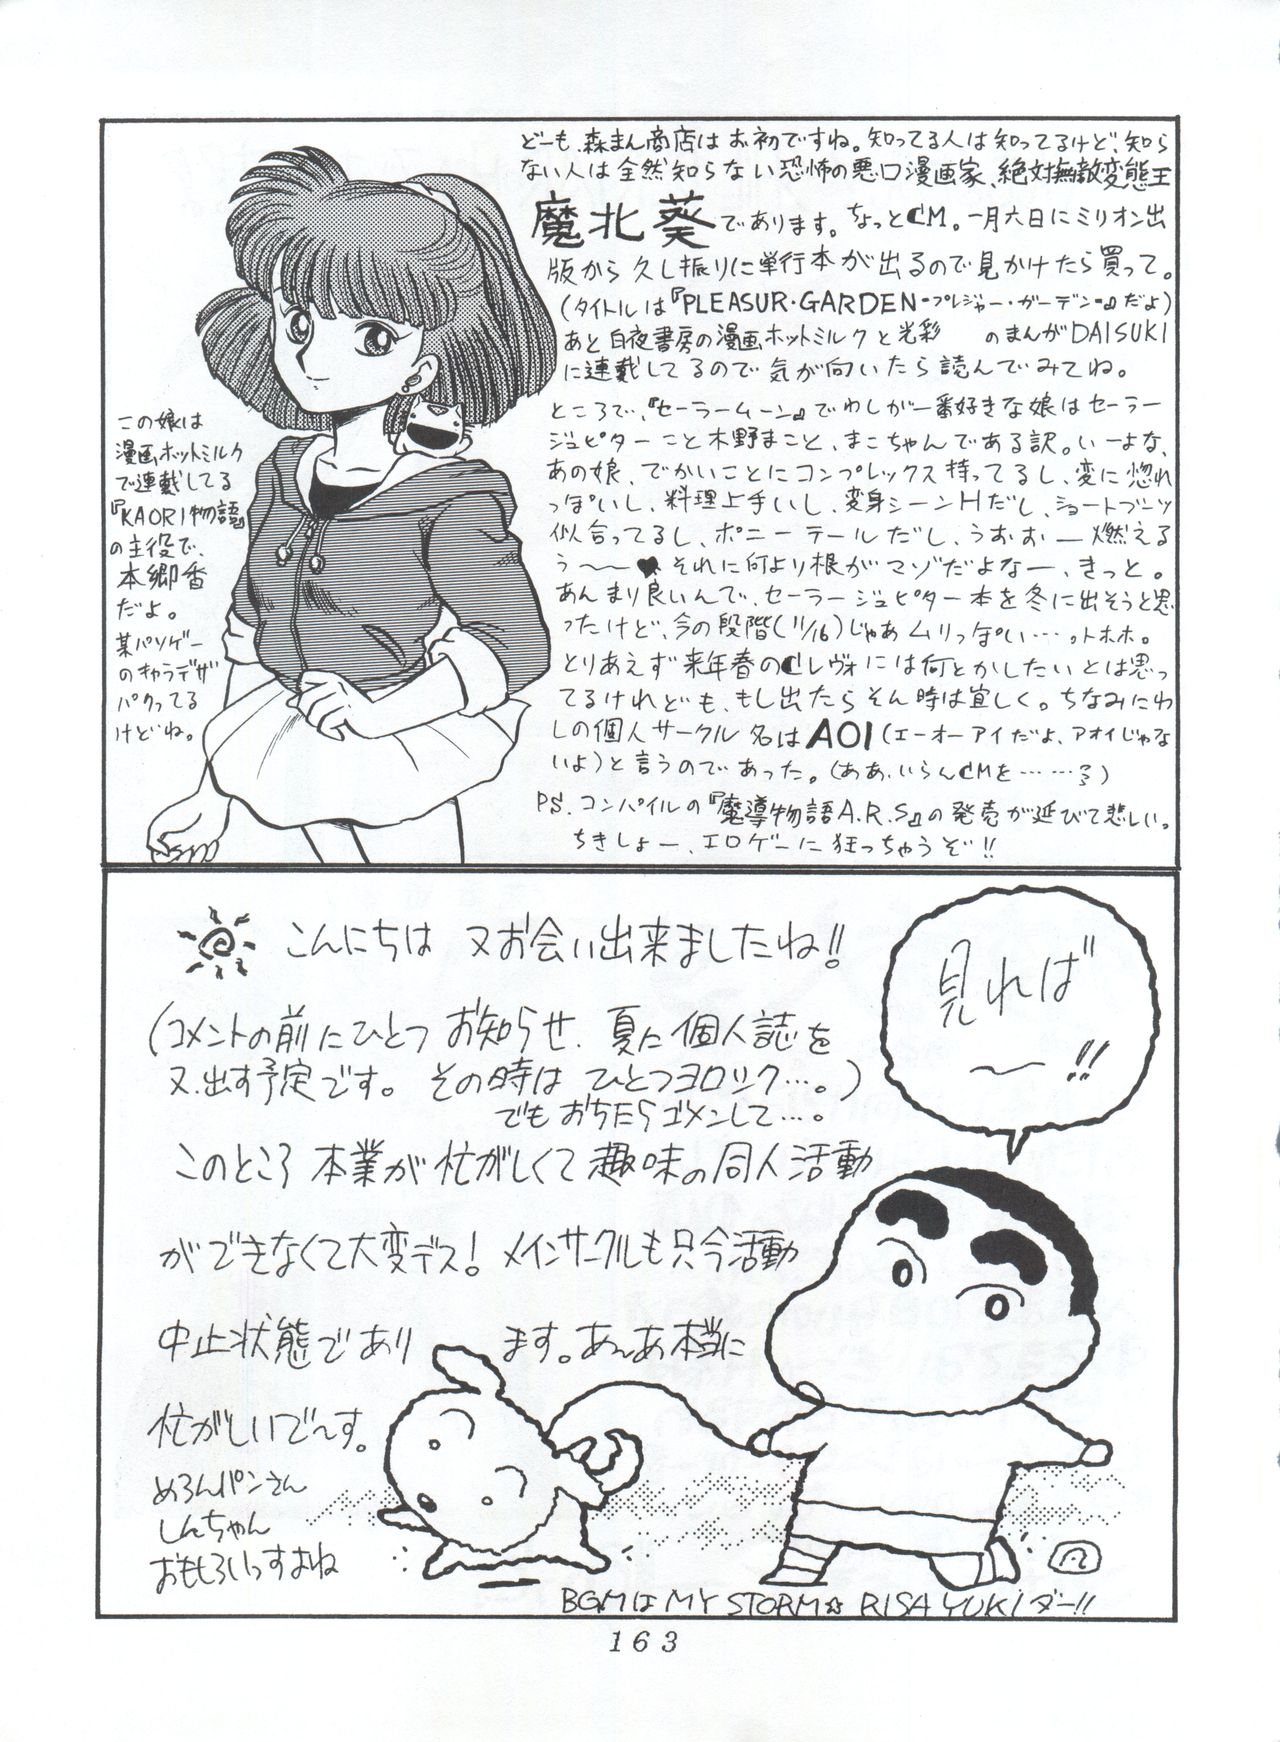 どーも、森まん商店はお初ですね。知ってる人は知ってるけど、知ら
ない人は全然知らない恐怖の悪口漫画家、絶対無敵変態王
魔北葵であります。ちょっとCM。一月六日にミリオン出
版から久し振りに単行本が出るので見かけたら買って。
(タイトルは『PLEASUR・GARDEN-プレジャー・ガーデン-』だよ)
あと白夜書房の漫画ホットミルクと光彩 のまんがDAISUKI
に連載してるので気が向いたら読んでみてね。
ところで、『セーラームーン』でわしが一番好きな娘はセーラー
ジュピターこと木野まこと、まこちゃんである訳。いーよな、
あの娘、でかいことにコンプレックス持ってるし、変に惚れ
っぽいし、料理上手いし、変身シーンHだし、ショートブーツ
似合ってるし、ポニーテールだし、うおぉー燃える
う〜〜♥それに何より根がマゾだよなー、きっと。
あんまり良いんで、セーラージュピター本を冬に出そうと思
ったけど、今の段階(11/16)じゃあムリっぽい…。トホホ。
とりあえず来年春のCレヴォには何とかしたいとは思っ
てるけれども、もし出たらそん時は宜しく。ちなみにわ
しの個人サークル名はAOI(エーオーアイだよ、アオイじゃな
いよ)と言うのであった。(ああ、いらんCMを……る)
PS.コンパイルの『魔導物語A.R.S』の発売が延びて悲しいっ
ちきしょー、エロゲーに狂っちゃうぞ!!
この娘は
漫画ホットミルク
で連載してる
『KAORI物語』
の主役で、
本郷香
だよ。
某パソゲー
のキャラデザ
パクってる
けどね。
こんにちは 又お会い出来ましたね!!
(コメントの前にひとつ お知らせ、夏に個人誌を
又、出す予定です。その時は ひとつヨロシク…。)
でもおちたらゴメンして…。
このところ 本業が忙がしくて趣味の同人活動
ができなくて大変デス! メインサークルも只今活動
中止状態であり ます。あんあ本当に
忙がしいで〜す。
めろんパンさん
しんちゃん
おもしろいっすよね
見れば
〜!!
BGMは MY STORM☆ RISA YUKiダー!!
163